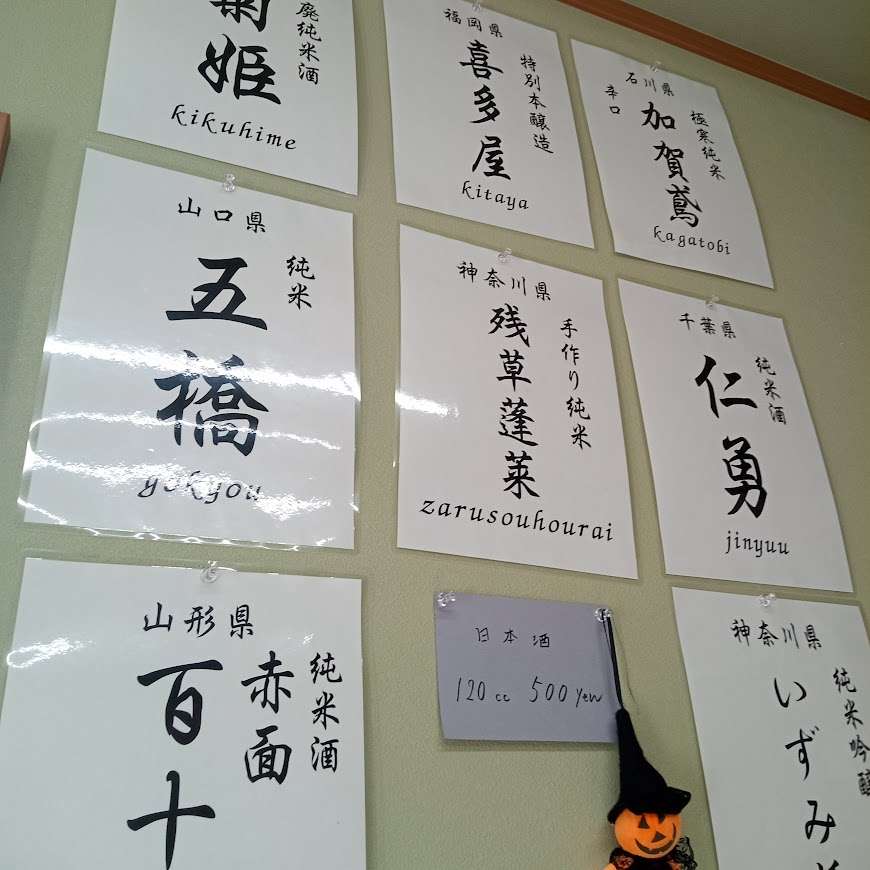 廃純米酒
菊姫
kikuhime
福岡県
特別本醸造
喜多屋
kitaya
石川県
極寒純米
辛口
加賀鳶
kagatobi
山口県
純米
五橋
gokyou
神奈川県
手作り純米
残草蓬莱
zarusouhourai
千葉県
純米酒
仁勇
jinyuu
山形県
純米酒
赤面
百十
日本酒
120cc 500yen
神奈川県
純米吟醸
いずみ